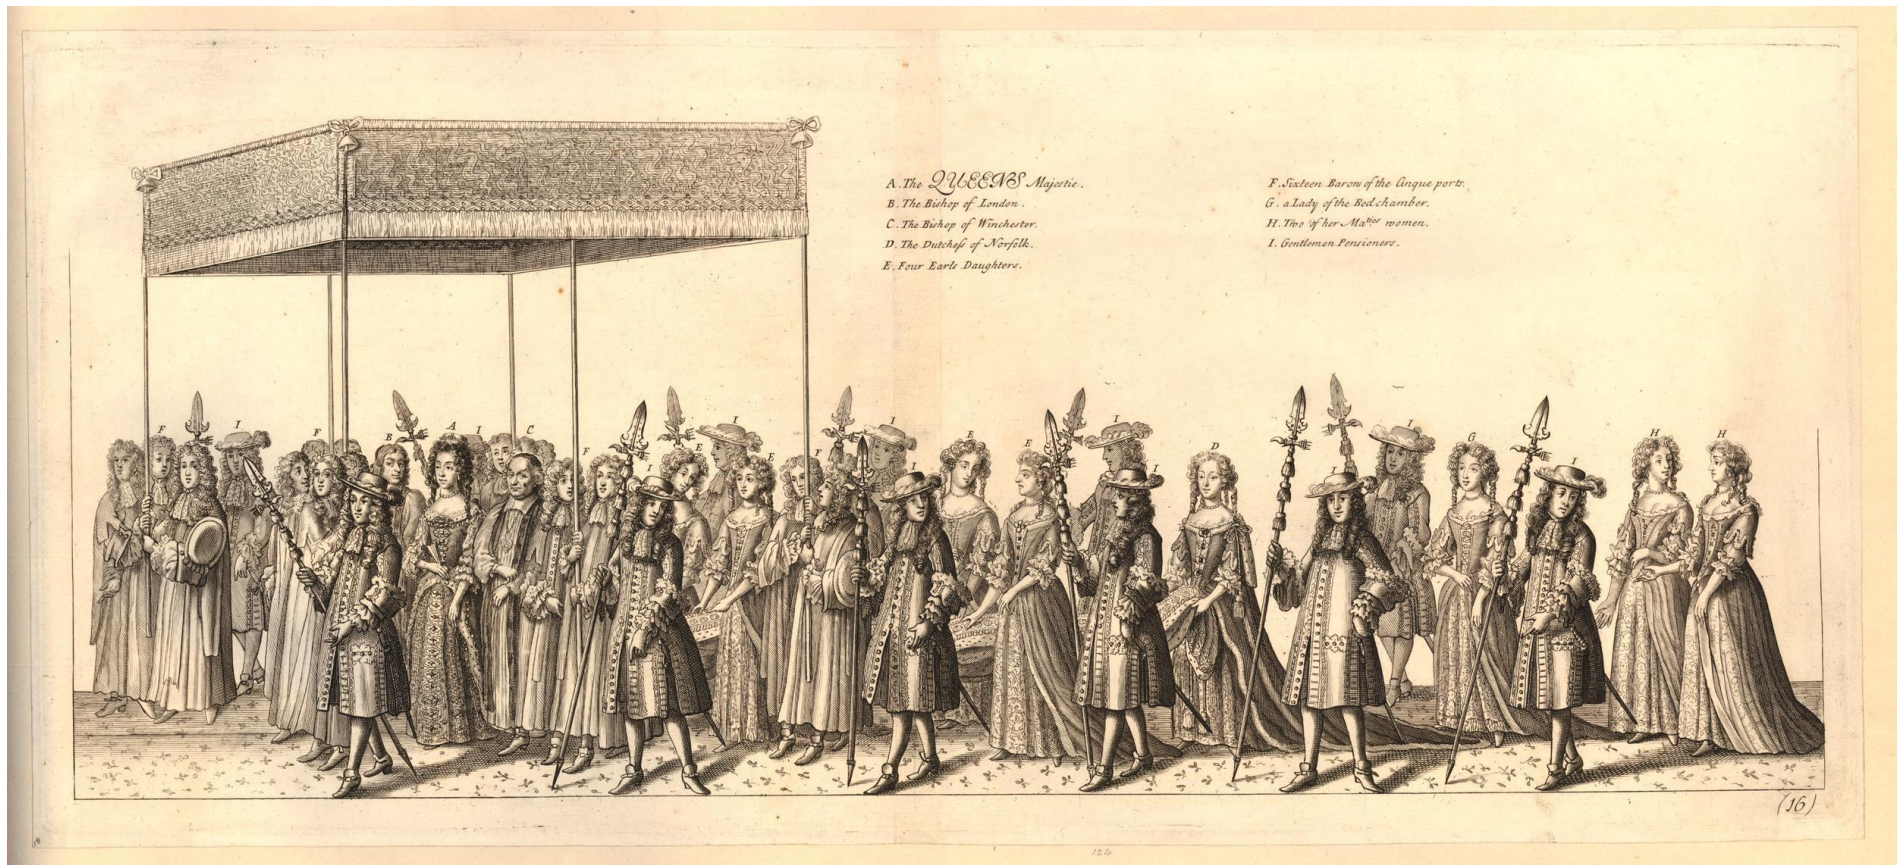 A. The QUEENS Majestie.
B. The Bishop of London.
C. The Bishop of Winchester.
D. The Dutchess of Norfolk.
E. Four Earls Daughters.
F. Sixteen Barons of the Cinque ports.
G. a Lady of the Bedchamber.
H. Two of her Maties women.
I. Gentlemen Pensioners.
F
I
F
B
A
I
C
F
I
E
I
E
F
I
E
E
I
I
D
I
I
G
I
H
H
(16)
124